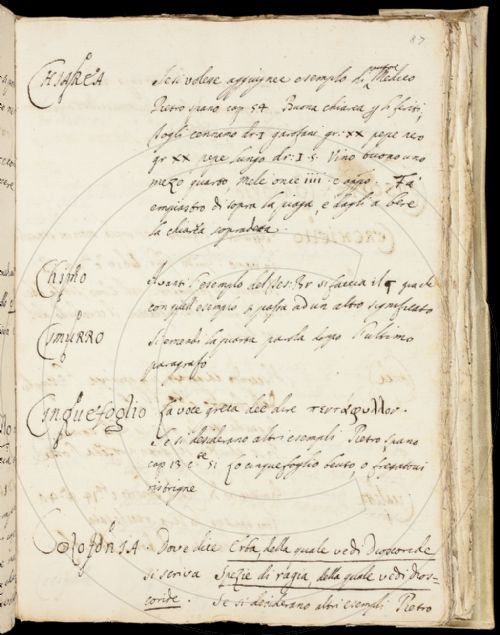 87
CHIAREA Se si volesse aggiugnere esempio di autore Medico
Pietro spano cap 54 Buona chiarea
togli cennamo dr: I garofane gr: XX pepe nero
gr XX pepe lungo dr: I s. Vino buono uno
mezo quarto Mele oncie iiii Fà
empiastro di sopra la piaga, e dagli a bere
la chiarea sopradetta.
CHINO Avanti l'esempio del si faccia il ¶
con quell esempio passa ad un altro significato
CIMURRO Si emendi la quarta parola dopo l'ultimo
paragrafo
CINQUEFOGLIO La voce greca dee dire πεντάφυλλον.
Se si desiderano altri esempli Pietro spano
cap 13 e 51 Lo cinquefoglio beuto o fregatovi
ristrigne
COLOFONIA Dove dice Erba, della quale vedi Dioscoride
si scriva Spezie di ragia della quale vedi Dios-
coride. Se si desiderano altri esempli Pietro